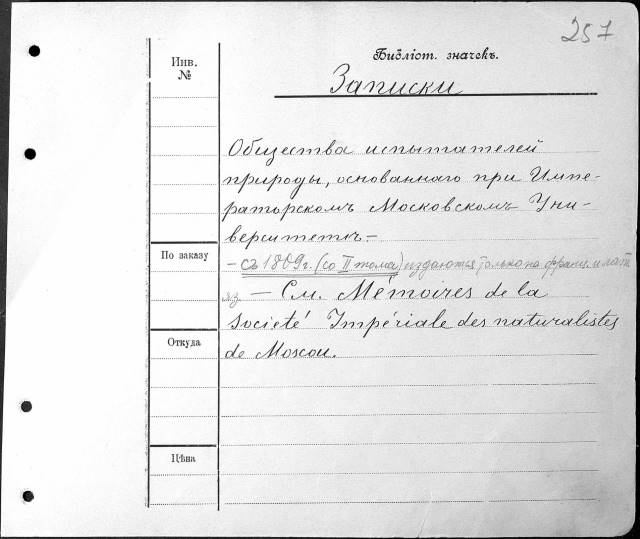 257
Библіот. значекъ.
Инв.
№
Записки
Общества испытателей
природы, основаннаго при Импе-
раторскомъ Московскомъ Уни-
верситетѣ. –
– съ 1809 г. (со II тома) издаются только на франц. и лат.
яз. – См. Mémoires de la
Societé Impériale des naturalistes
de Moscou.
По заказу
Откуда
Цѣна